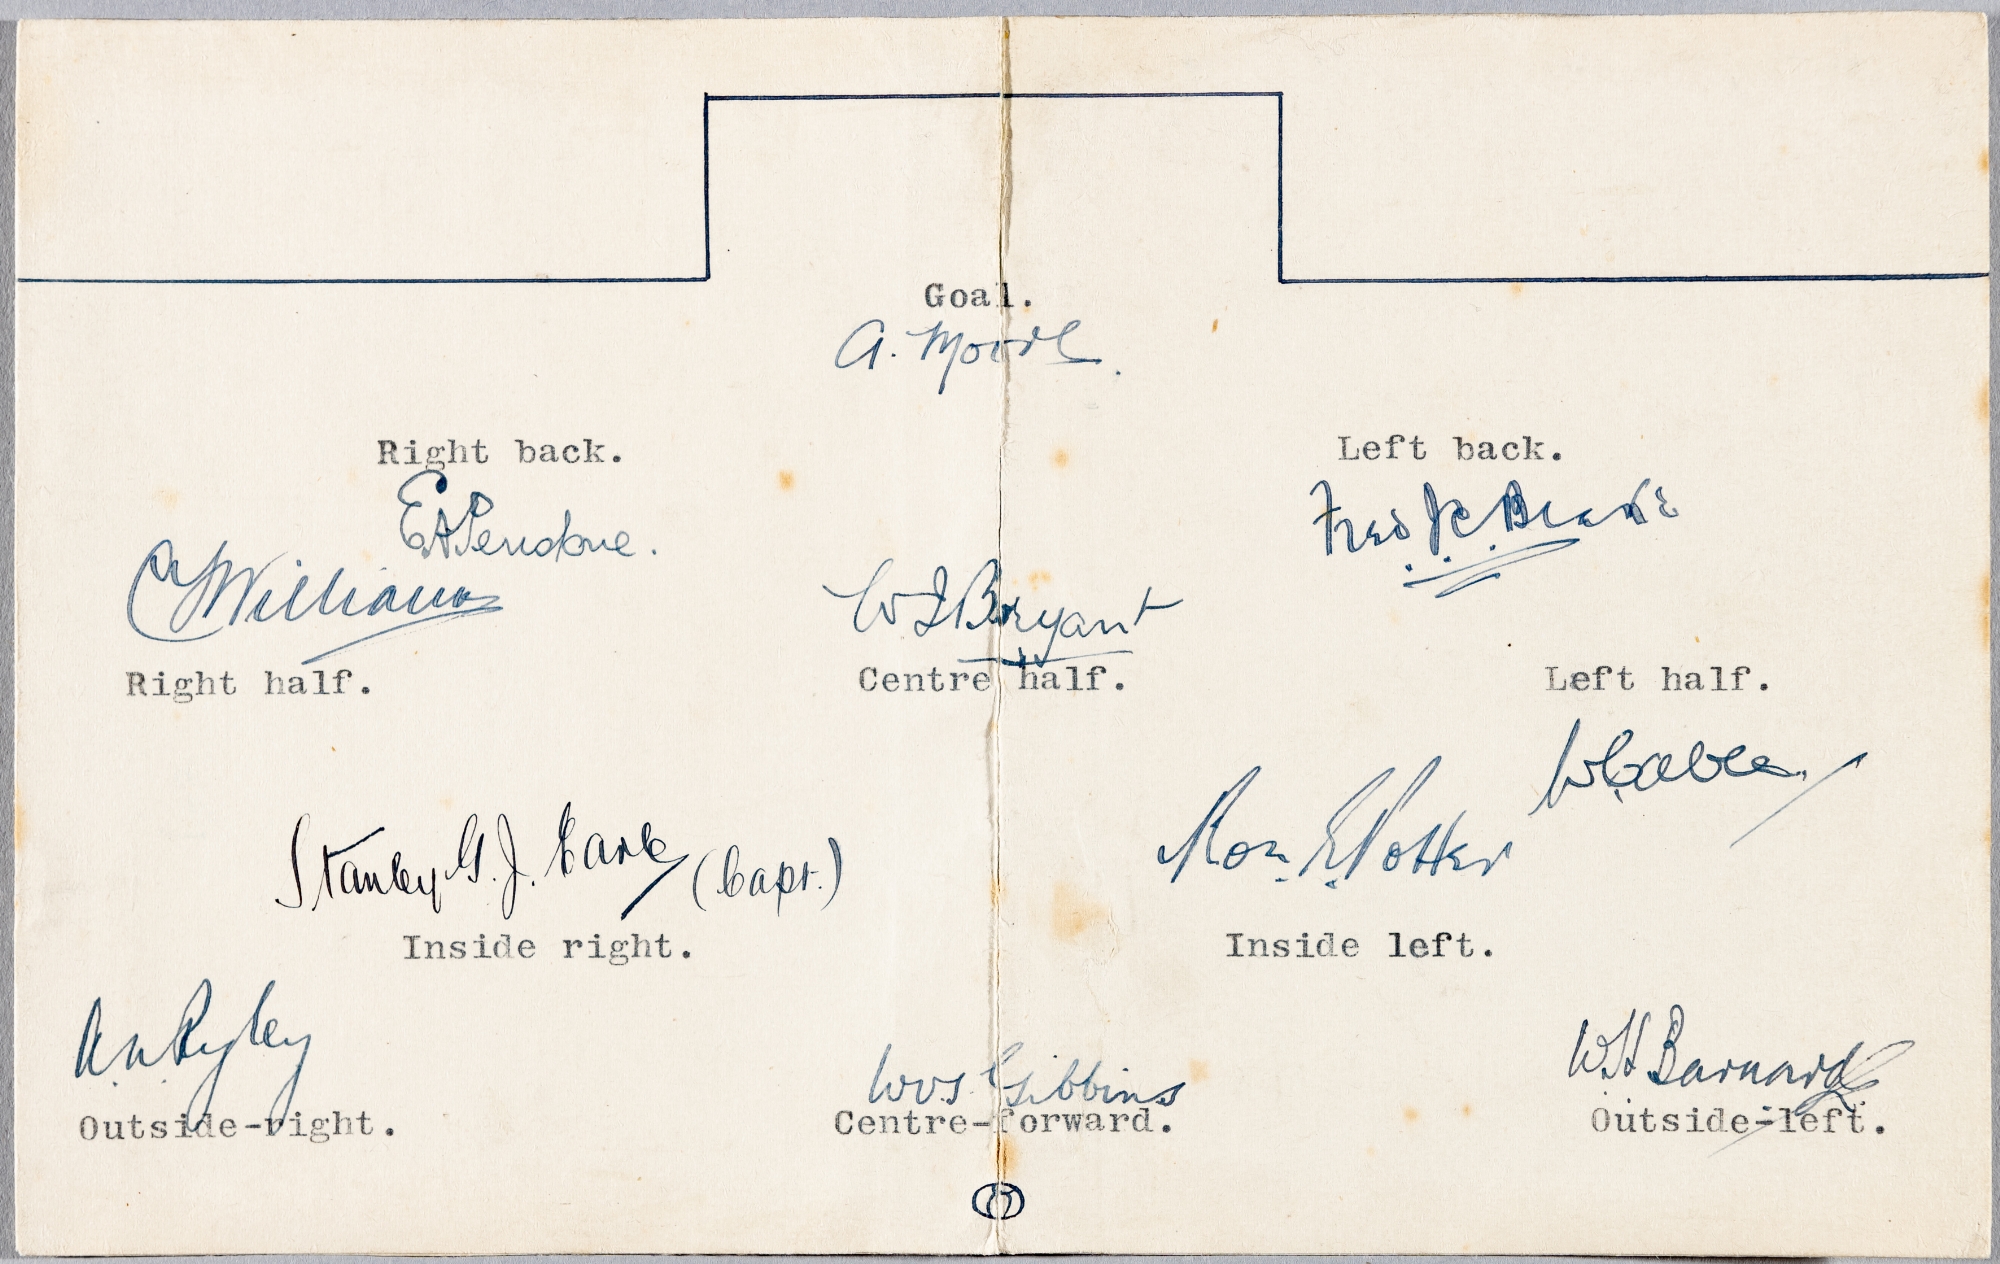 Goal.
A. Moore
Right back.
Left back.
E A
Fred
C J Williams
W I Bryant
Right half.
Centre half.
Left half.
W Caesar
Stanley G. J. Earle (Capt.)
Ron. E. Potter
Inside right.
Inside left.
A. N. Ryley
W V T Gibbins
W H Barnard
Outside-right.
Centre-forward.
Outside-left.